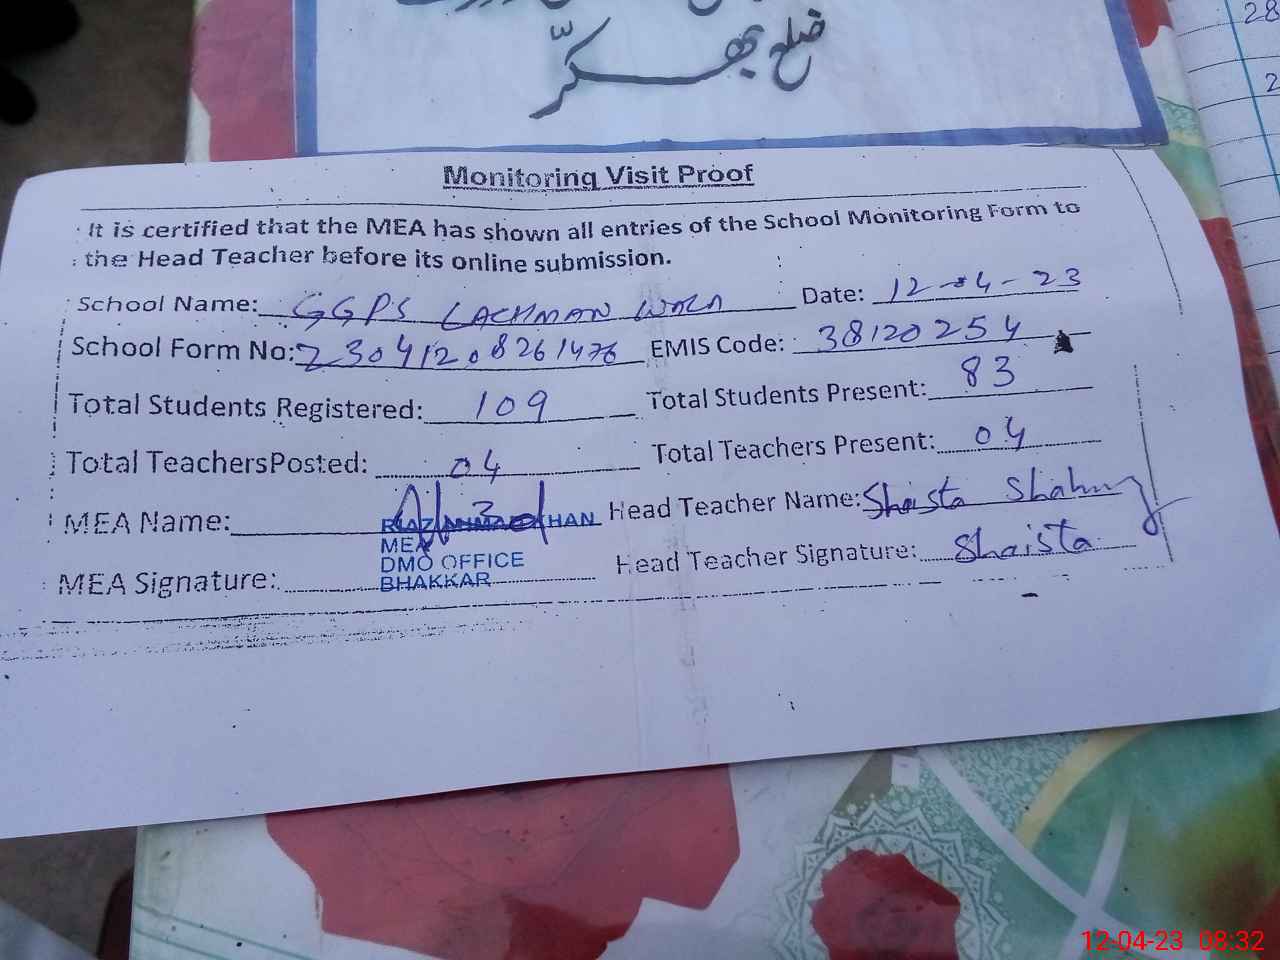 ضلع بھکّر
28
2
Monitoring Visit Proof
It is certified that the MEA has shown all entries of the School Monitoring Form to
the Head Teacher before its online submission.
School Name: GGPS LACHMAN WALA Date: 12-04-23
School Form No: 23041208261476 EMIS Code: 38120254
Total Students Registered: 109 Total Students Present: 83
Total TeachersPosted: 04 Total Teachers Present: 04
MEA Name: RIAZ AHMAD KHAN Head Teacher Name: Shaista Shahnaz
MEA
DMO OFFICE
MEA Signature: BHAKKAR Head Teacher Signature: Shaista
12-04-23 08:32